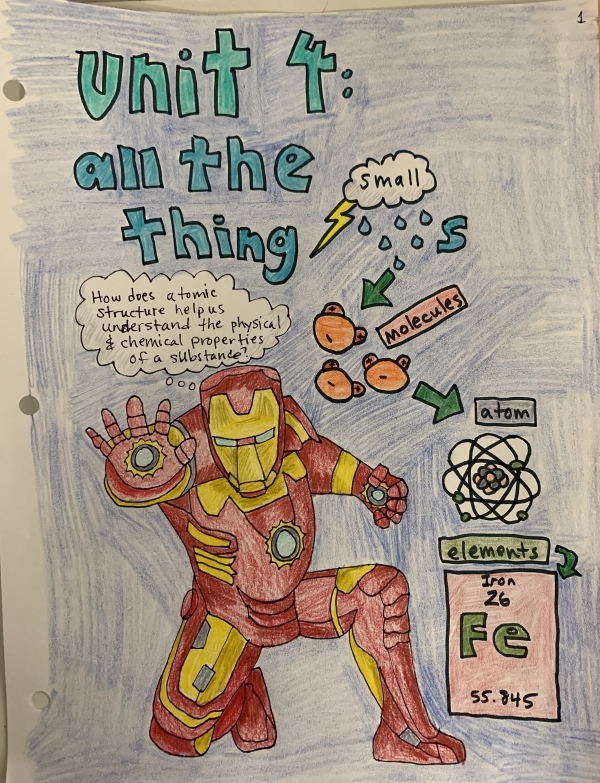 1
Unit 4:
all the
thing
small
s
How does atomic
structure help us
understand the physical
& chemical properties
of a substance?
molecules
+
+
-
+
+
-
+
+
-
atom
elements
Iron
26
Fe
55.845